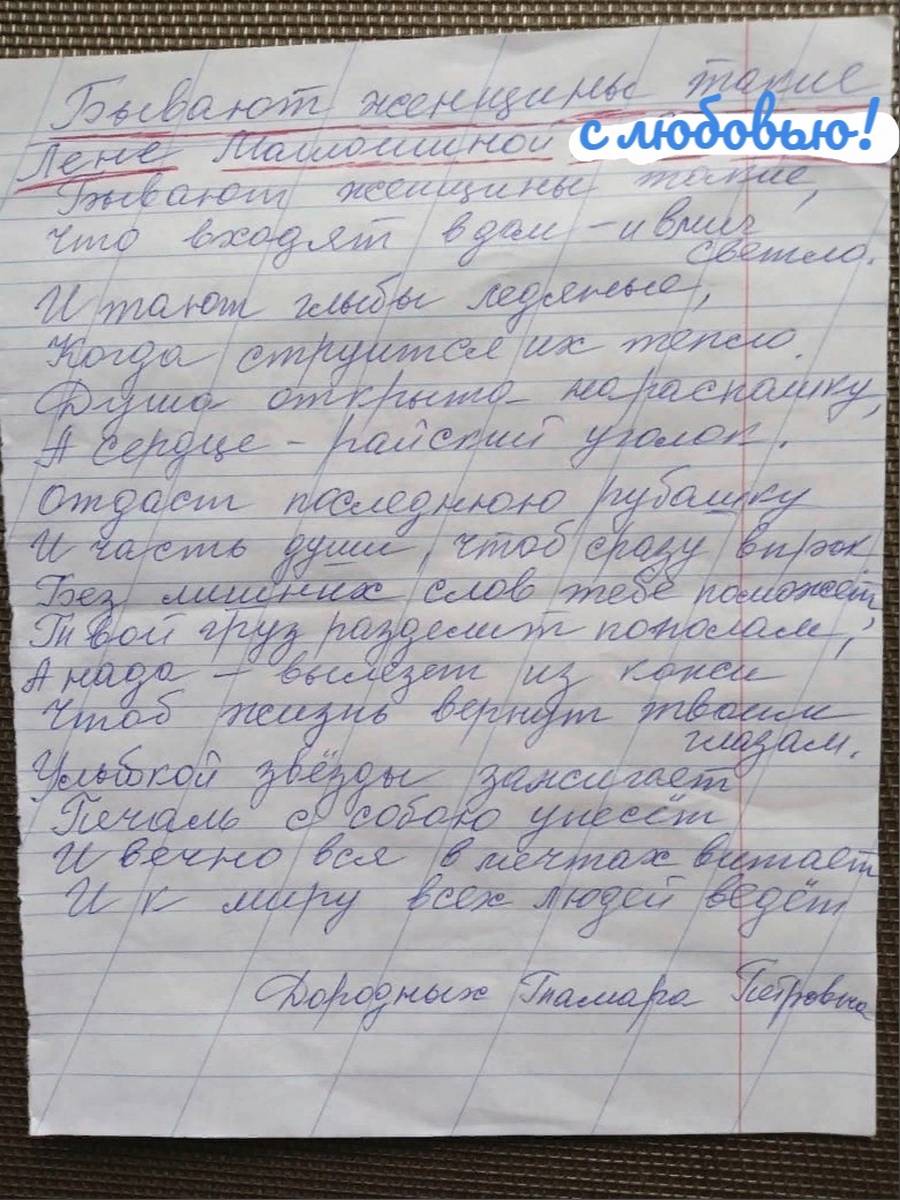 Бывают женщины такие
Лене Матюшиной с любовью!
Бывают женщины такие,
Что входят в дом – и вмиг
светло.
И тают глыбы ледяные,
Когда струится их тепло.
Душа открыта нараспашку,
А сердце – райский уголок.
Отдаст последнюю рубашку
И часть души, чтоб сразу впрок
Без лишних слов тебе поможет,
Твой груз разделит пополам,
А нада – вылезет из кожи
Чтоб жизнь вернут твоим
глазам.
Улыбкой звёзды зажигает
Печаль с собою унесёт
И вечно вся в мечтах витает
И к миру всех людей ведёт
Дородных Тамара Петровна